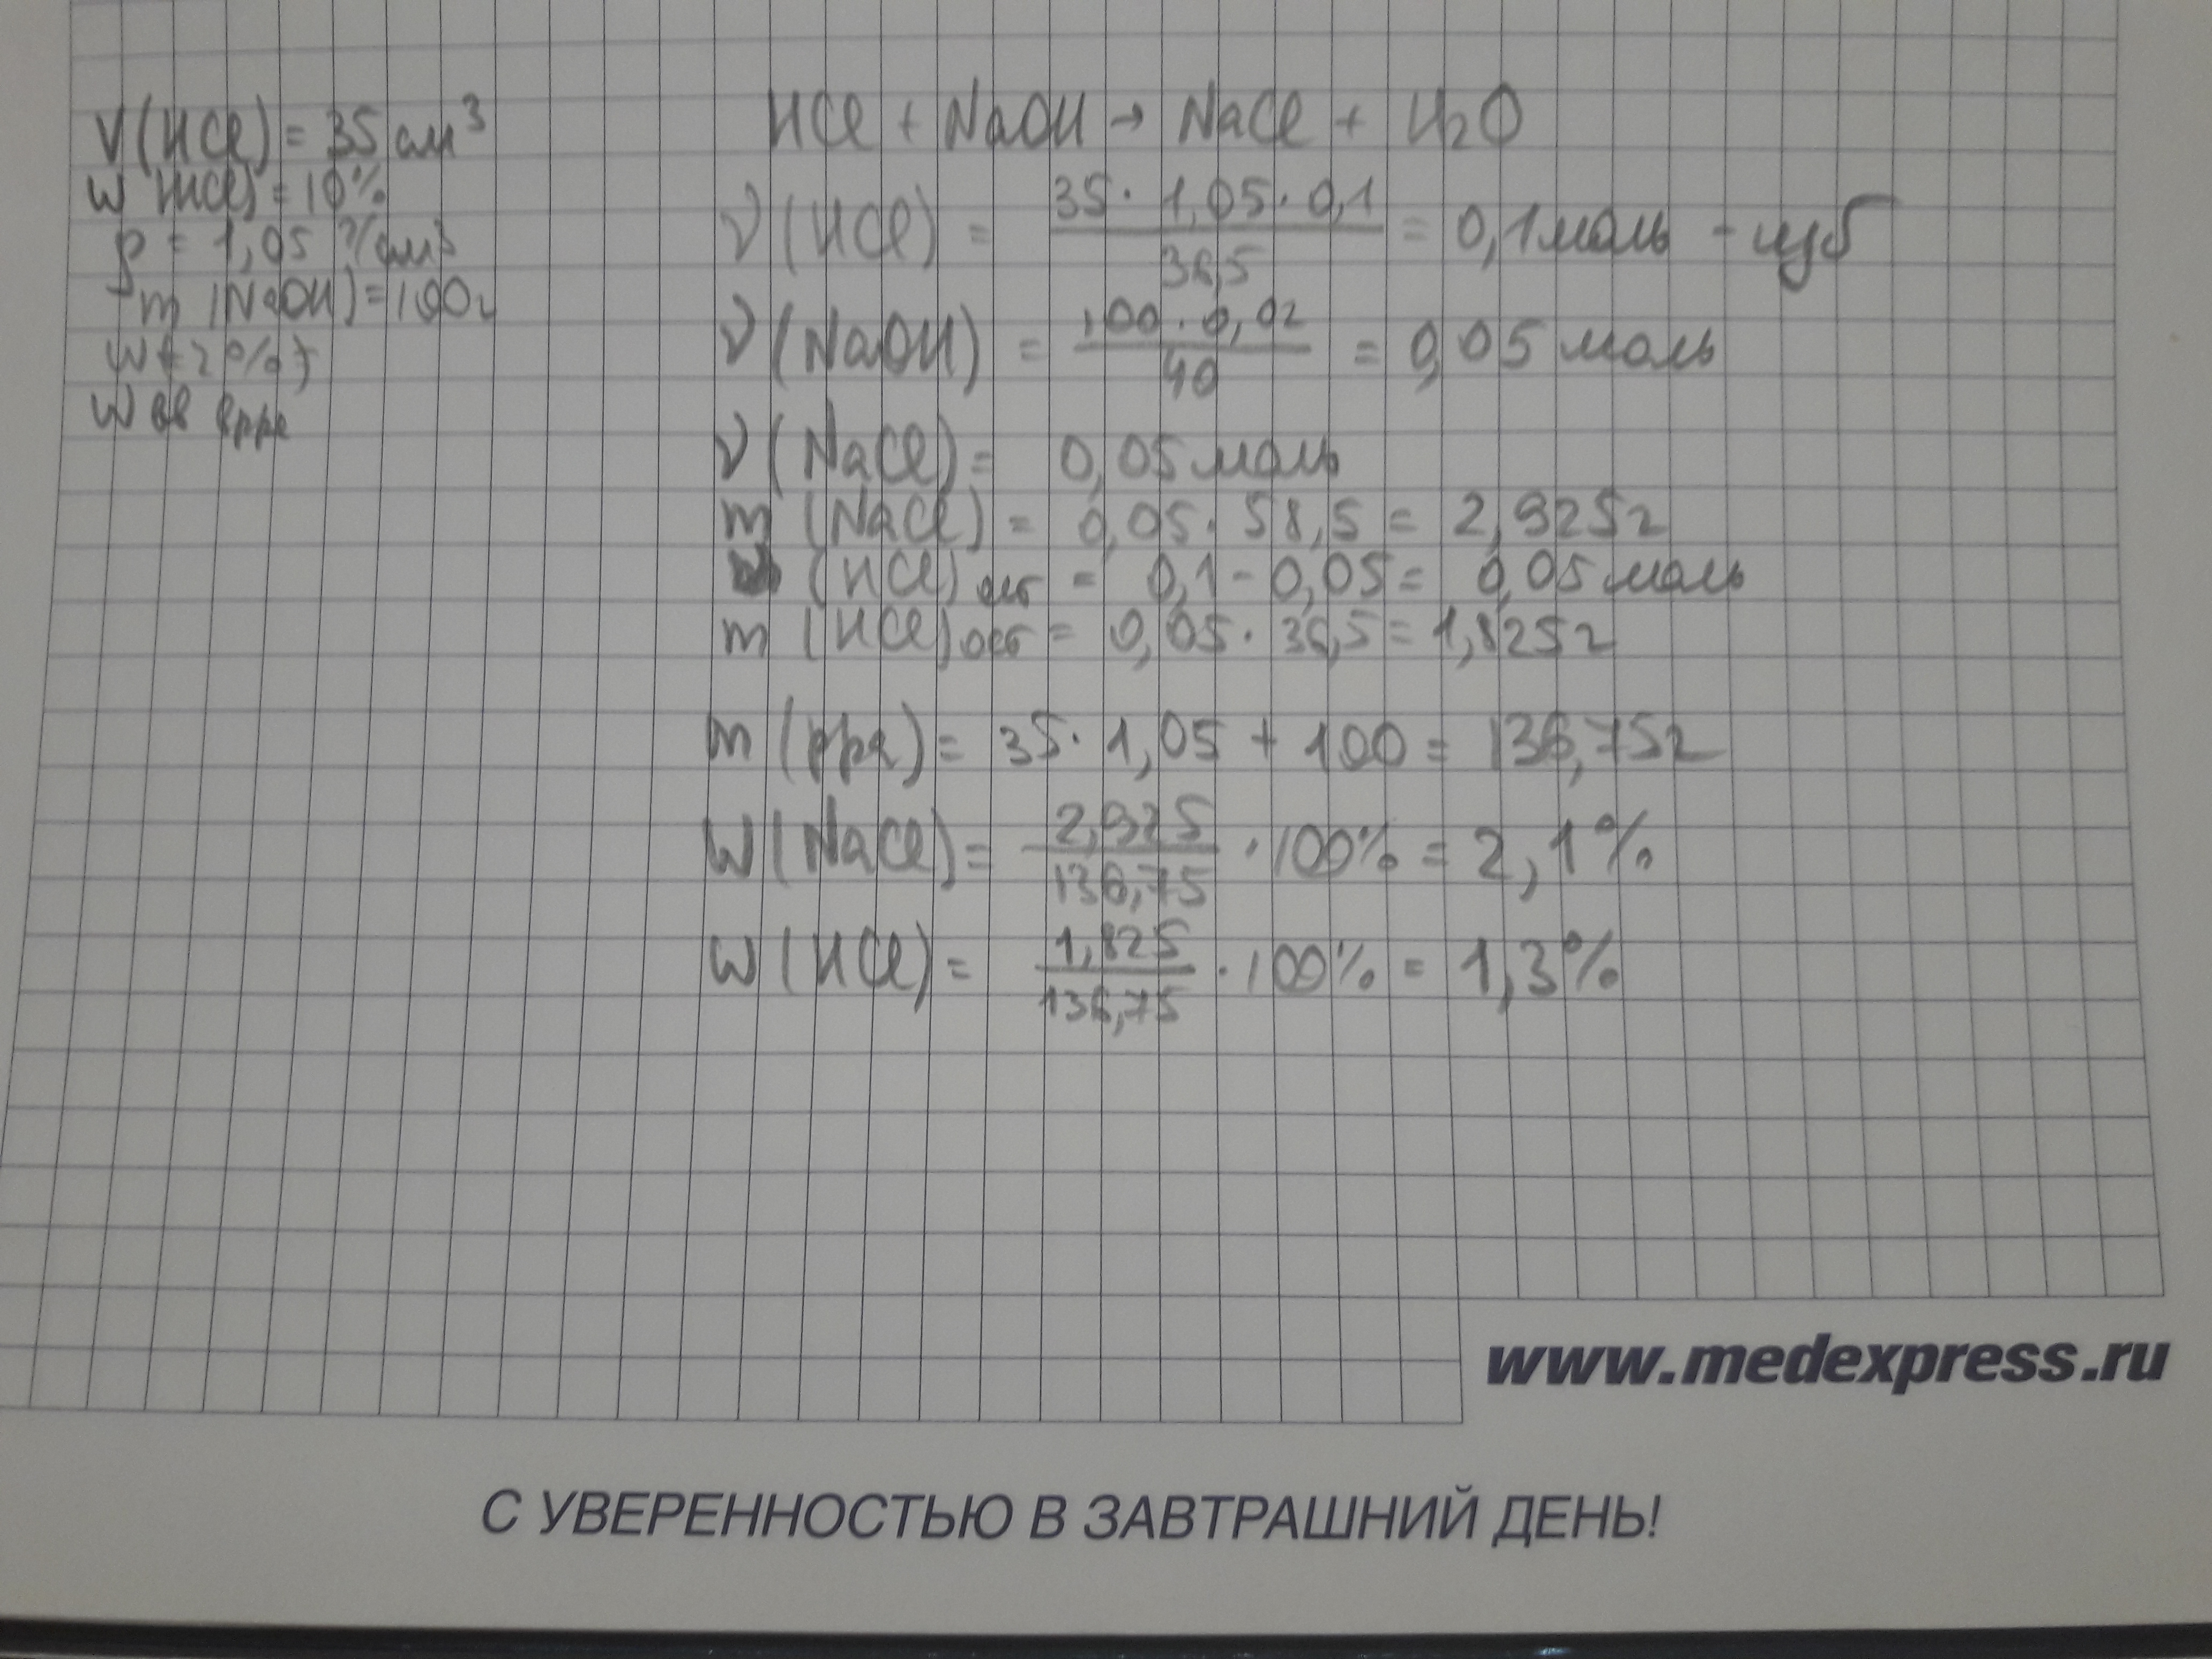 V(HCl) = 35 см³
W (HCl) = 10%
ρ = 1,05 г/см³
m (NaOH) = 100г
W (2%)
W вв
HCl + NaOH → NaCl + H₂O
ν(HCl) = 35 · 1,05 · 0,1 / 36,5 = 0,1 моль - изб
ν(NaOH) = 100 · 0,02 / 40 = 0,05 моль
ν(NaCl) = 0,05 моль
m (NaCl) = 0,05 · 58,5 = 2,925г
(HCl) ост = 0,1 - 0,05 = 0,05 моль
m (HCl) ост = 0,05 · 36,5 = 1,825г
m (рра) = 35 · 1,05 + 100 = 136,75г
W(NaCl) = 2,925 / 136,75 · 100% = 2,1%
W(HCl) = 1,825 / 136,75 · 100% = 1,3%
www.medexpress.ru
С УВЕРЕННОСТЬЮ В ЗАВТРАШНИЙ ДЕНЬ!